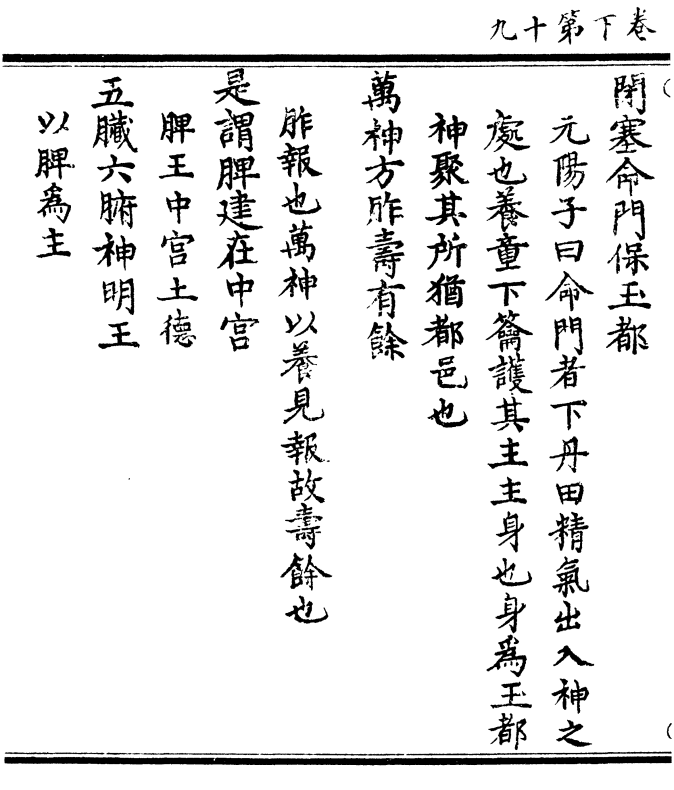 卷下第十九
閉塞命門保玉都
元陽子曰命門者下丹田精氣出入神之
處也養童下籥護其主主身也身爲玉都
神聚其所猶都邑也
萬神方胙壽有餘
胙報也萬神以養見報故壽餘也
是謂脾建在中宮
脾王中宮土德
五臟六腑神明王
以脾爲主